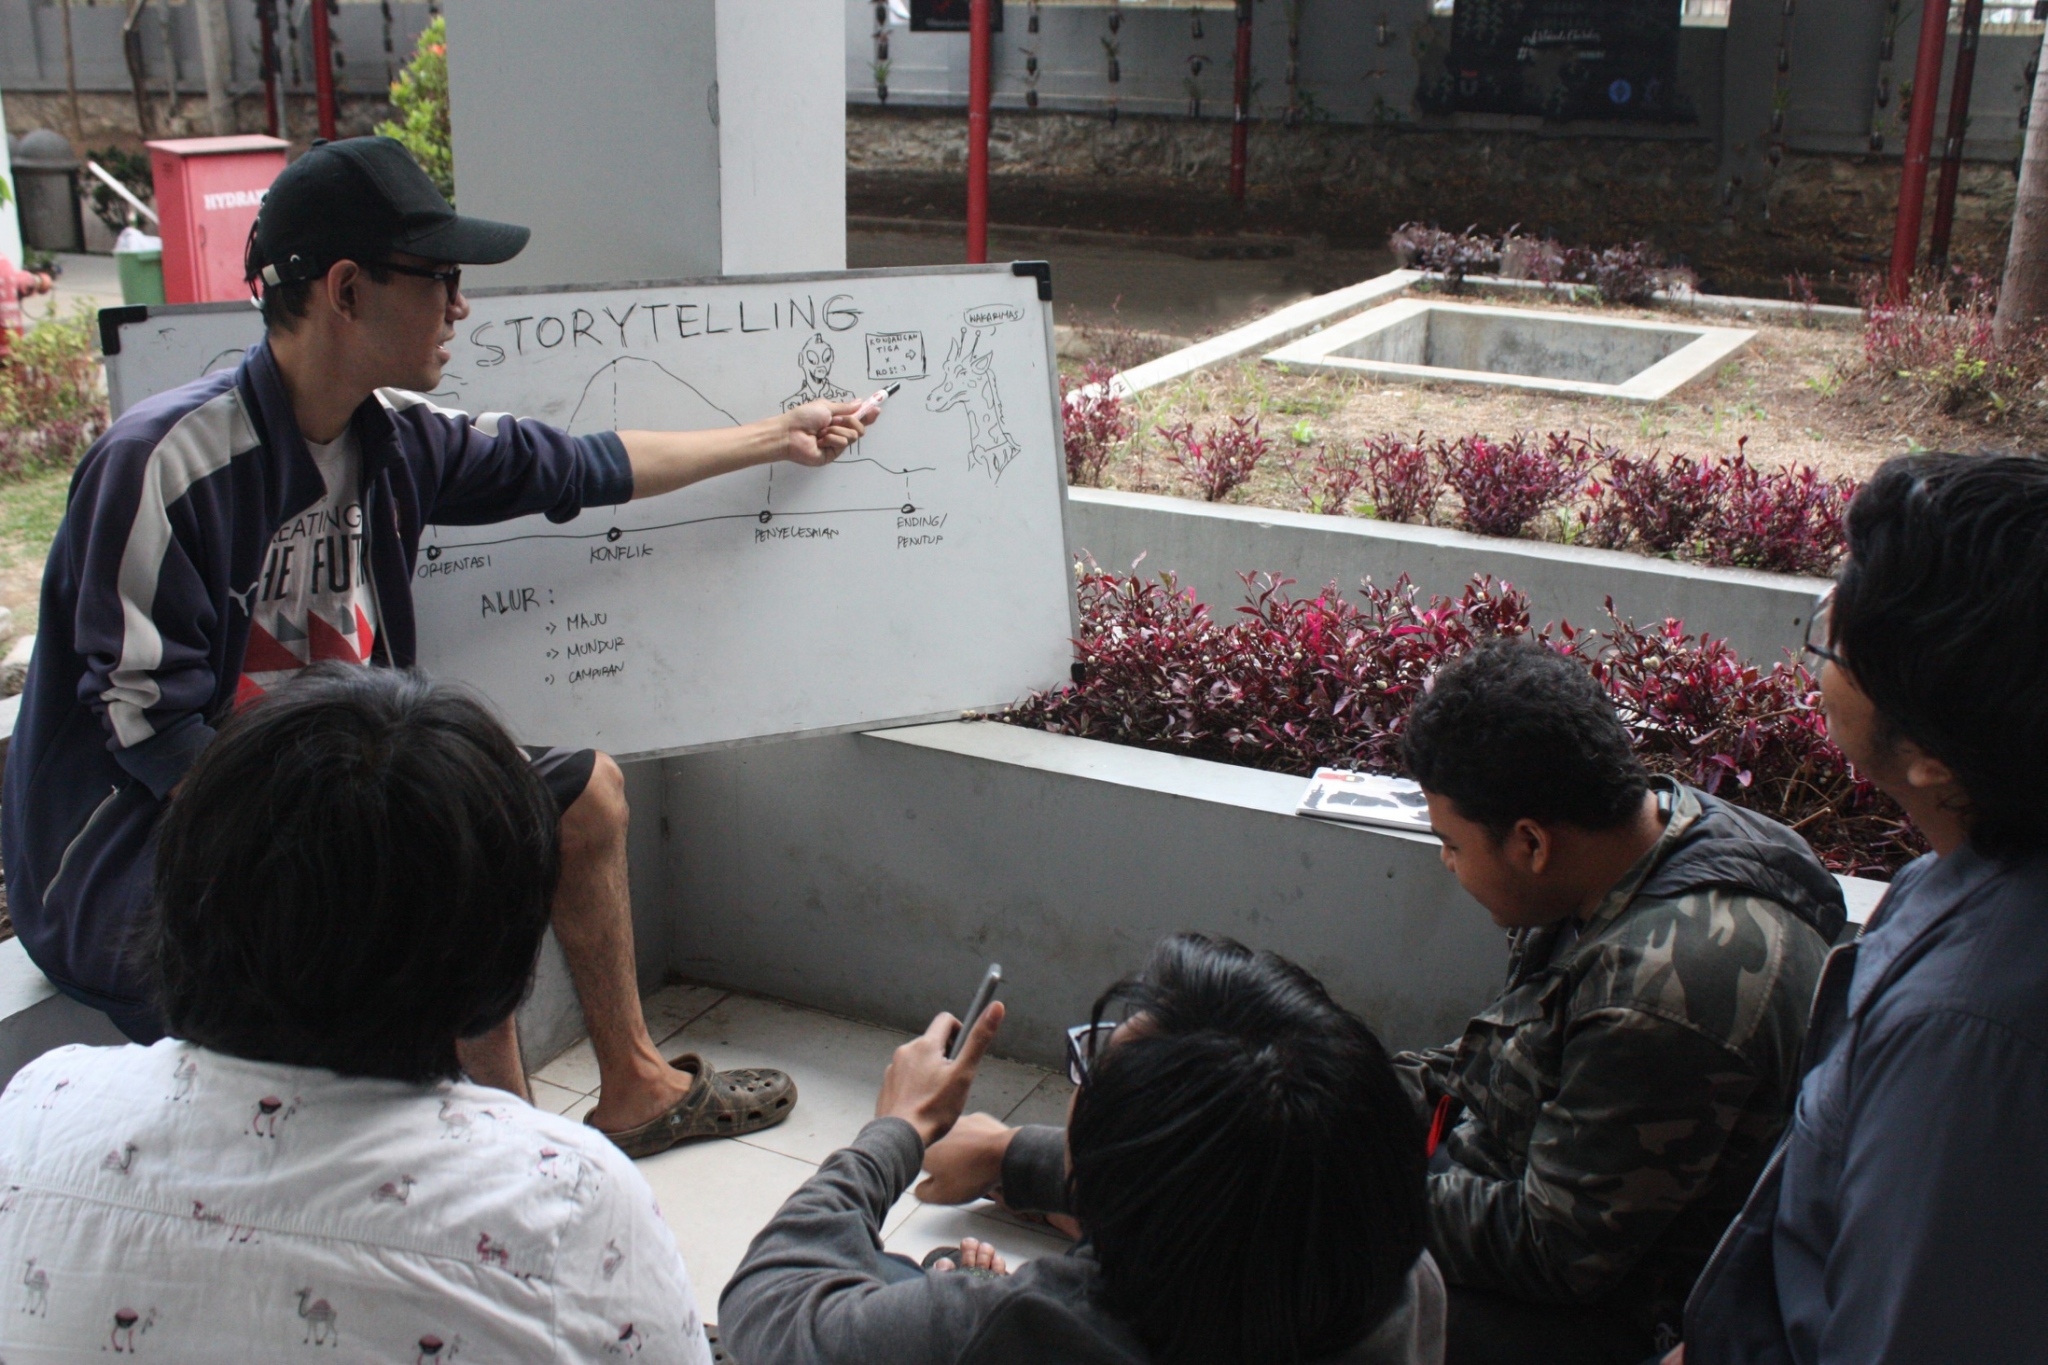 STORYTELLING
KONDANGAN
TIGA
X
ROSI :)
WAKARIMAS
ORIENTASI
KONFLIK
PENYELESAIAN
ENDING/
PENUTUP
ALUR :
MAJU
MUNDUR
CAMPURAN
HYDRA
EATING
HE FUT